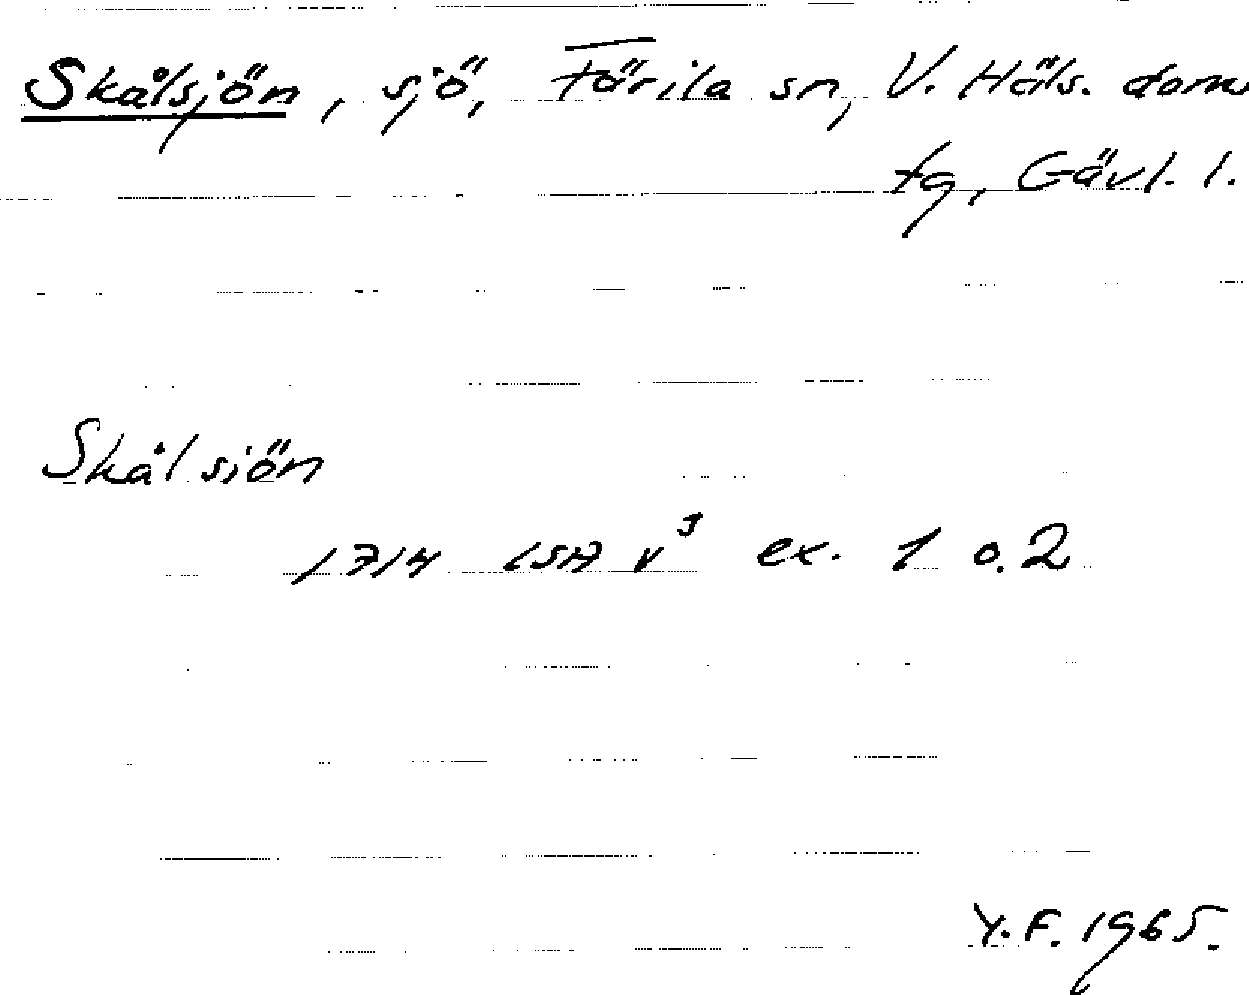 Skålsjön, sjö, Färila sn, V. Häls. doms
tg, Gävl. l.
Skålsiön
1714 LSA V³ ex. 1 o. 2
Y.F. 1965.